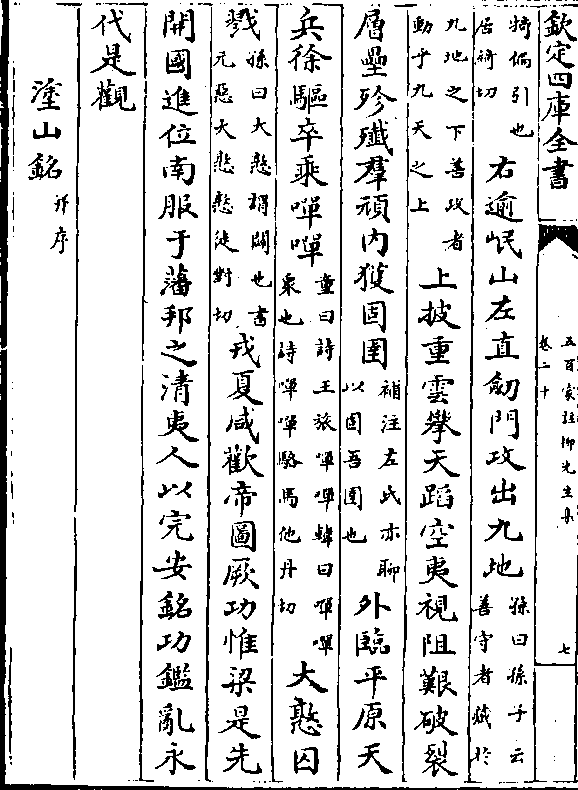 欽定四庫全書
五百家註柳先生集
卷二十
七
犄偏引也
居綺切
右逾岷山左直劒門攻出九地
孫曰孫子云
善守者藏於
九地之下善攻者
動于九天之上
上披重雲攀天蹈空夷視阻艱破裂
層壘殄殲羣頑内獲固圉
補注左氏亦聊
以固吾圉也
外臨平原天
兵徐驅卒乘嘽嘽
童曰詩王旅嘽嘽韓曰嘽嘽
衆也詩嘽嘽駱馬他丹切
大憝囚
戮
孫曰大憝謂闢也書
元惡大憝憝徒對切
戎夏咸歡帝圖厥功惟梁是先
開國進位南服于藩邦之清夷人以完安銘功鑑亂永
代是觀
塗山銘
并序